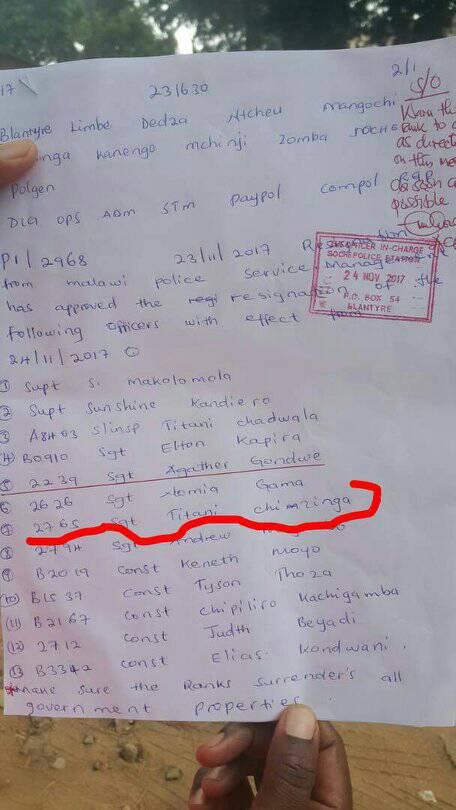 17 231630 2/1
S/O
Blantyre Limbe Dedza Ntcheu Mangochi
Know the
Rank to
as direct
on this
as soon
possible
inga Kanengo mchinji Zomba SOCHE
Polgen
DLG OPS ADM STM Paypol compol
PI / 2968 23/11/2017
from malawi police service management
has approved the resignation of the
following officers with effect from
24/11/2017
OFFICER IN-CHARGE
SOCHE POLICE STATION
24 NOV 2017
P.O. BOX 54
BLANTYRE
① Supt S. Makolomola
② Supt Sunshine Kandiero
③ A8403 S/insp Titani Chadwala
④ B0910 Sgt Elton Kapira
⑤ 2239 Sgt Agather Gondwe
⑥ 2626 Sgt Gama
⑦ 2765 Sgt Titani Chimzinga
⑧ Sgt Andrew
⑨ B2019 Const Keneth Moyo
⑩ B1537 Const Tyson Phoza
(11) B2167 Const Chipiliro Kachigamba
(12) 2712 Const Judth Beyadi
⑬ B3342 Const Elias Kondwani.
*make sure the Ranks surrender's all
government properties.